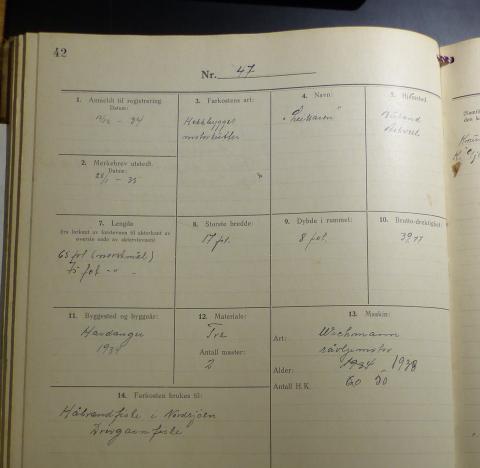 42
Nr. 47
1. Anmeldt til registrering
Datum:
- 34
2. Merkebrev utstedt.
Datum:
- 35
3. Farkostens art:
Hekkbygget
motorkutter
4. Navn:
5. Hjemsted.
7. Lengde
(fra forkant av forstevnen til akterkant av
øverste ende av akterstevnen):
65 fot (norsk mål)
71 fot " "
8. Største bredde:
17 fot.
9. Dybde i rummet:
8 fot.
10. Brutto-drektighet:
11. Byggested og byggeår:
Hardanger
1934
12. Materiale:
Tre
Antall master:
2
13. Maskin:
Art: Wichmann
råoljemotor
Alder: 1934 1938
Antall H.K. 60 90
14. Farkosten brukes til:
Håbrandfiske i Nordsjøen
Drivgarnfiske